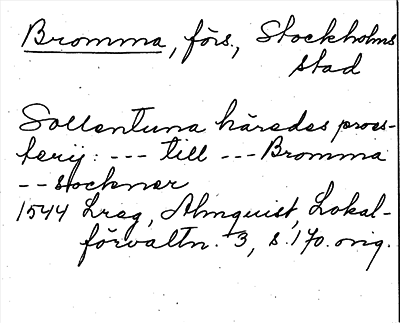 Bromma, förs., Stockholms
stad
Sollentuna härades pros-
terij: --- till --- Bromma
-- sockner
1544 Lreg, Almquist, Lokal-
förvaltn. 3, s. 170. orig.